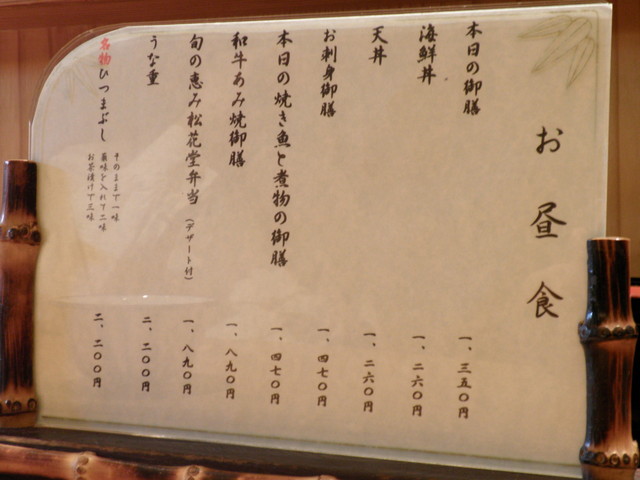 お昼食
本日の御膳 一、三五〇円
海鮮丼 一、二六〇円
天丼 一、二六〇円
お刺身御膳 一、四七〇円
本日の焼き魚と煮物の御膳 一、四七〇円
和牛あみ焼御膳 一、八九〇円
旬の恵み松花堂弁当（デザート付） 一、八九〇円
うな重 二、二〇〇円
名物ひつまぶし 二、二〇〇円
そのままで一味
薬味を入れて二味
お茶漬けで三味